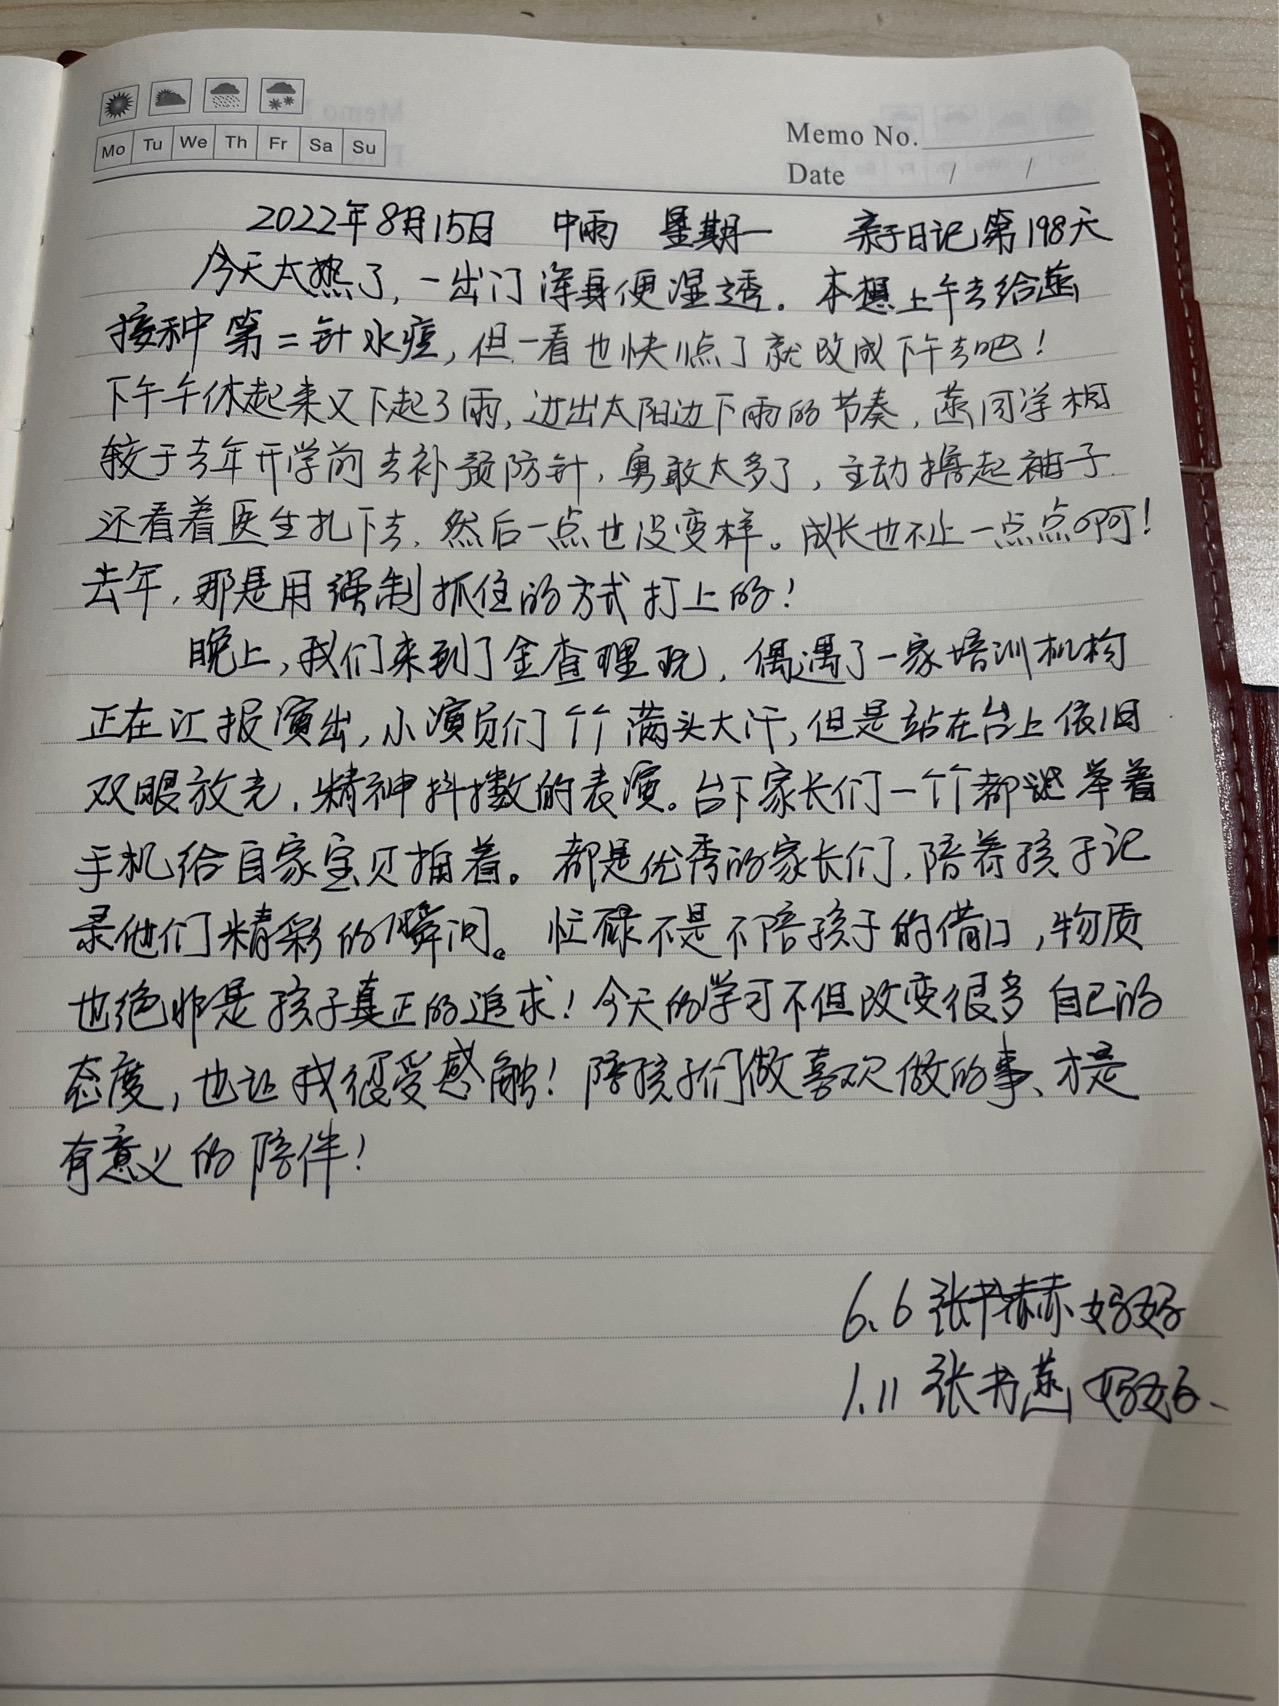 Mo Tu We Th Fr Sa Su
Memo No.
Date / /
2022年8月15日 中雨 星期一 亲子日记第198天
今天太热了，一出门浑身便湿透。本想上午去给菡
接种第二针水痘，但一看也快11点了就改成下午去吧！
下午午休起来又下起了雨，边出太阳边下雨的节奏，菡同学相
较于去年开学前去补预防针，勇敢太多了，主动撸起袖子
还看着医生扎下去，然后一点也没变样。成长也不止一点点啊！
去年，那是用强制抓住的方式打上的！
晚上，我们来到了金查理玩，偶遇了一家培训机构
正在汇报演出，小演员们个个满头大汗，但是站在台上依旧
双眼放光，精神抖擞的表演。台下家长们一个个都举着
手机给自家宝贝拍着。都是优秀的家长们，陪着孩子记
录他们精彩的瞬间。忙碌不是不陪孩子的借口，物质
也绝非是孩子真正的追求！今天的学习不但改变很多自己的
态度，也让我很受感触！陪孩子们做喜欢做的事、才是
有意义的陪伴！
6.6 张书赫 妈妈
1.11 张书菡 妈妈